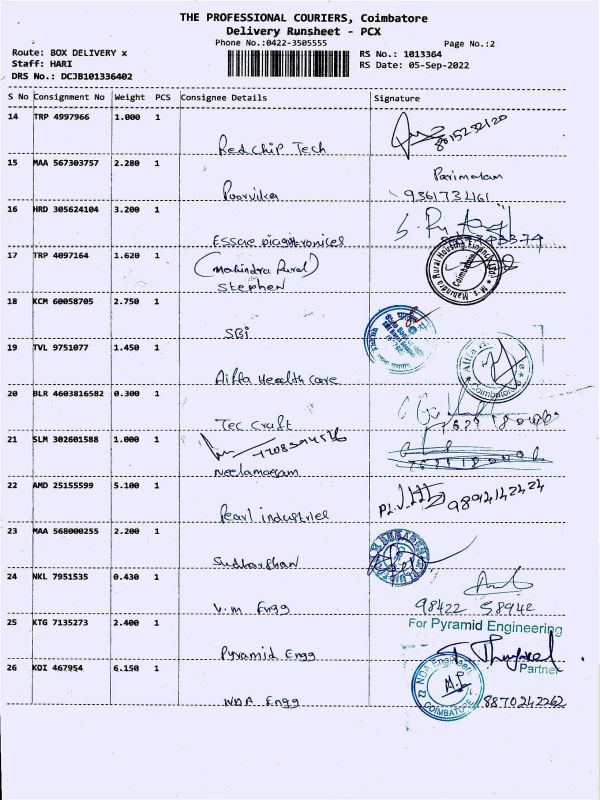 THE PROFESSIONAL COURIERS, Coimbatore
Delivery Runsheet - PCX
Phone No.:0422-3505555
Page No.:2
Route: BOX DELIVERY x
RS No.: 1013364
Staff: HARI
RS Date: 05-Sep-2022
DRS No.: DCJB101336402
S No Consignment No Weight PCS Consignee Details Signature
14 TRP 4997966 1.000 1
Redchip Tech
15 MAA 567303757 2.280 1
Parimalam
Poorvika
16 HRD 305624104 3.200 1
Essae
17 TRP 4097164 1.620 1
(Mahindra Rural)
Stephen
18 KCM 60058705 2.750 1
SBi
19 TVL 9751077 1.450 1
Aiffa Health Care
20 BLR 4603816582 0.300 1
Tec Craft
21 SLM 302601588 1.000 1
Neelamegam
22 AMD 25155599 5.100 1
9894142424
Pearl industries
23 MAA 568000255 2.200 1
Sudharshan
24 NKL 7951535 0.430 1
V.m Engg 98422 58942
25 KTG 7135273 2.400 1
For Pyramid Engineering
Pyramid Engg
Partner
26 KDI 467954 6.150 1
NDA Engineer
COIMBATORE
NDA Engg 8870242262